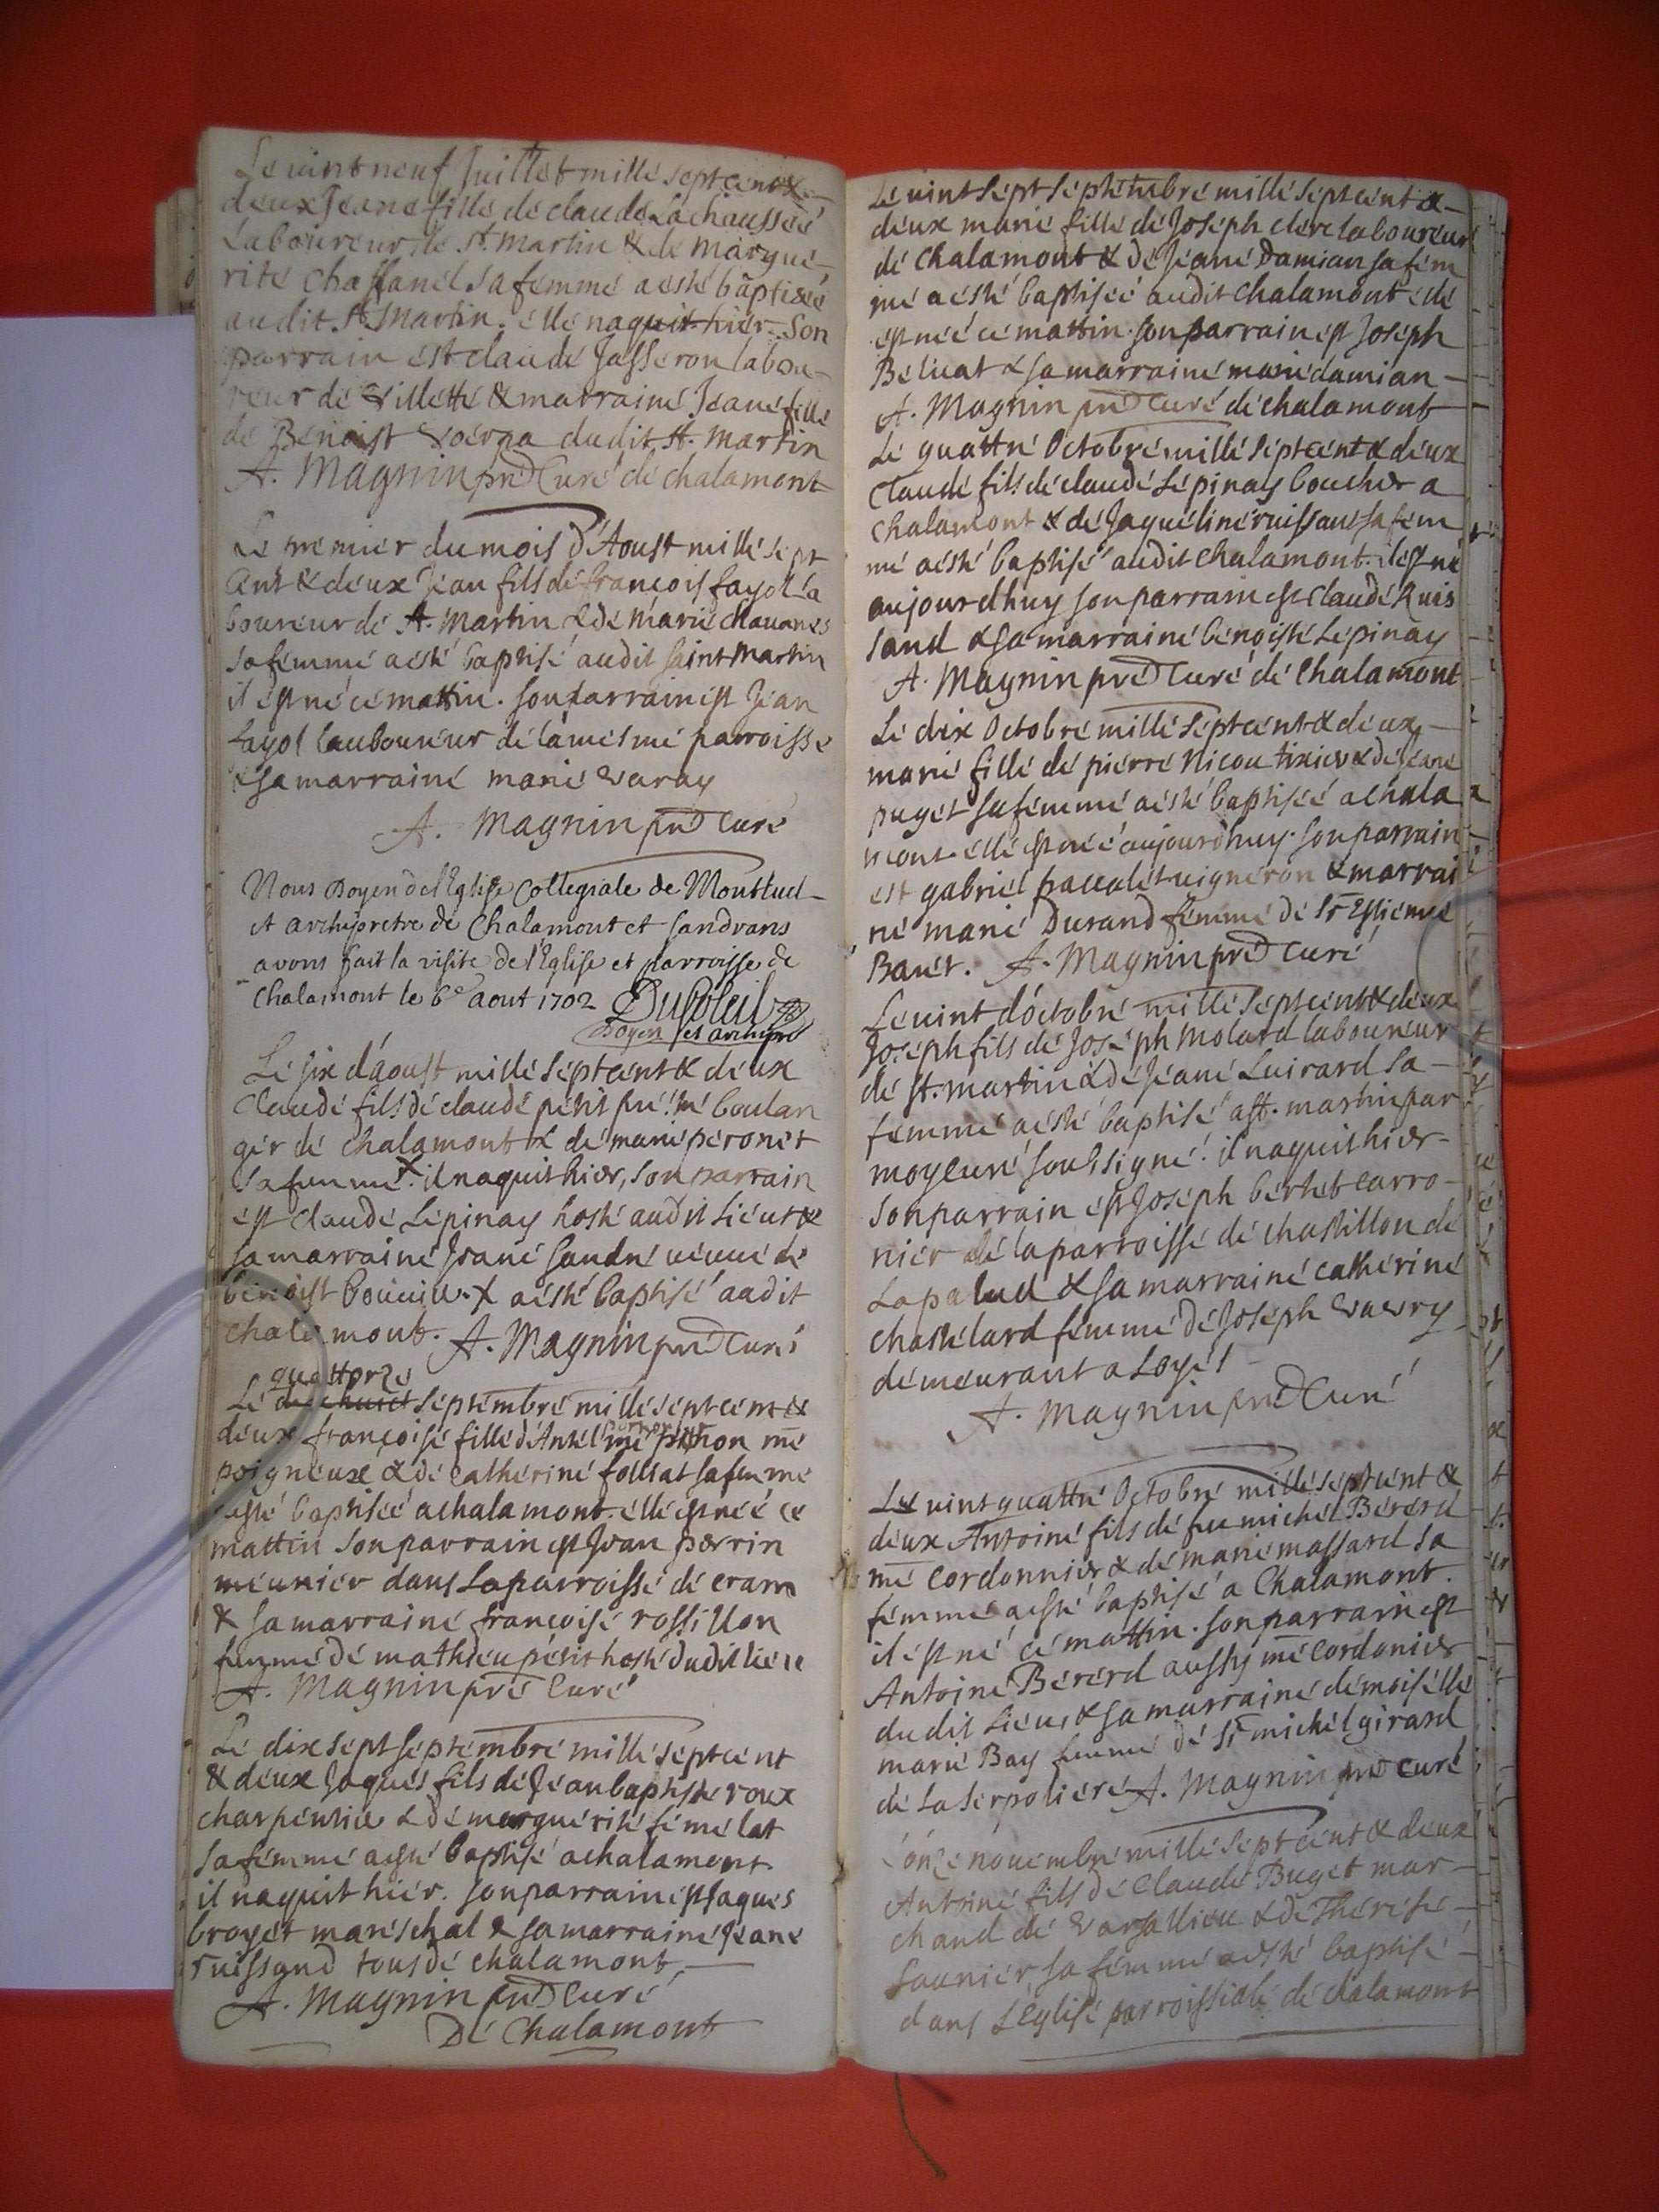 Le vint neuf Juillet mille sept cent &
deux Jeane fille de claude Lachaussée
Laboureur de st. Martin & de Margue-
rite Chassanel sa femme a esté baptisée
audit st Martin. elle naquit hier. Son
parrain est claude Jasseron labou-
reur de Villette & marraine Jeane fille
de Benoist dudit st. Martin
A. Magnin pre Curé de chalamont
Le premier du mois d'Aoust mille sept
cent & deux Jean fils de françois fayol la
boureur de st. Martin & de Marie chavanes
sa femme a esté baptisé audit saint Martin
il est né ce mattin. son parrain est Jean
fayol laboureur de la mesme parroisse
& sa marraine marie varay
A. Magnin pre Curé
Nous Doyen de l'Eglise Collegiale de Montluel
et archipretre de Chalamont et Sandrans
avons fait la visite de l'Eglise et parroisse de
Chalamont le 6e aout 1702 DuSoleil
Doyen et archipre
Le six d'aoust mille sept cent & deux
Claude fils de claude petit me boulan
ger de chalamont & de marie peronet
sa femme X. il naquit hier, son parrain
est Claude Lepinay hoste audit Lieu &
sa marraine Jeane Sandre veuve de
benoist X a esté baptisé audit
chalamont. A. Magnin pre Curé
quattorze
Le septembre mille sept cent &
deux françoise fille d'Antelme pithon me
poigneux & de Catherine folliat sa femme
a esté baptisée a chalamont. elle est née ce
mattin son parrain est Jean perrin
meunier dans La parroisse de crans
& sa marraine françoise rossillon
femme de mathieu petit hoste dudit lieu
A. Magnin pre Curé
Le dix sept septembre mille sept cent
& deux Jaques fils de Jean baptiste roux
charpentier & de marguerite femelat
sa femme a esté baptisé a chalamont
il naquit hier. son parrain est Jaques
broyet mareschal & sa marraine Jeane
ruissand tous de chalamont
A. Magnin pre Curé
De Chalamont
Le vint sept septembre mille sept cent &
deux marie fille de Joseph clerc laboureur
de Chalamont & de Jeane Damian sa fem
me a esté baptisée audit chalamont elle
est née ce mattin. son parrain est Joseph
Belicat & sa marraine marie damian
A. Magnin pre Curé de chalamont
Le quattre Octobre mille sept cent & deux
Claude fils de claude Lepinay boucher a
chalamont & de Jaqueline ruissand sa fem
me a esté baptisé audit chalamont. il est né
aujourdhuy son parrain est Claude Ruis
sand & sa marraine benoiste Lepinay
A. Magnin pre Curé de Chalamont
Le dix Octobre mille sept cent & deux
marie fille de pierre Nicou tixier & de Jeane
puget sa femme a esté baptisée a chala
mont elle est née aujourdhuy. son parrain
est gabriel paccalet vigneron & marrai
ne marie Durand femme de Sr Estienne
Banet. A. Magnin pre Curé
Le vint d'octobre mille sept cent & deux
Joseph fils de Joseph Molard laboureur
de st. martin & de Jeane Luirard sa
femme a esté baptisé a st. martin par
moy curé soubsigné. il naquit hier
Son parrain est Joseph bertet carro-
nier de la parroisse de chastillon de
La palud & sa marraine catherine
chastelard femme de Joseph vavry
demeurant a Loyes
A. Magnin pre Curé
Le vint quattre Octobre mille sept cent &
deux Antoine fils de feu michel Bererd
me cordonnier & de marie massard sa
femme a esté baptisé a Chalamont.
il est né ce mattin. son parrain est
Antoine Bererd aussy me cordonier
dudit Lieu, & sa marraine demoiselle
marie Bay femme de Sr michel girard
de La serpoliere A. Magnin pre curé
L'onze novembre mille sept cent & deux
Antoine fils de Claude Buget mar-
chand de varallieu & de Therese
Saunier, sa femme a esté baptisé
dans L'Eglise parroissiale de chalamont